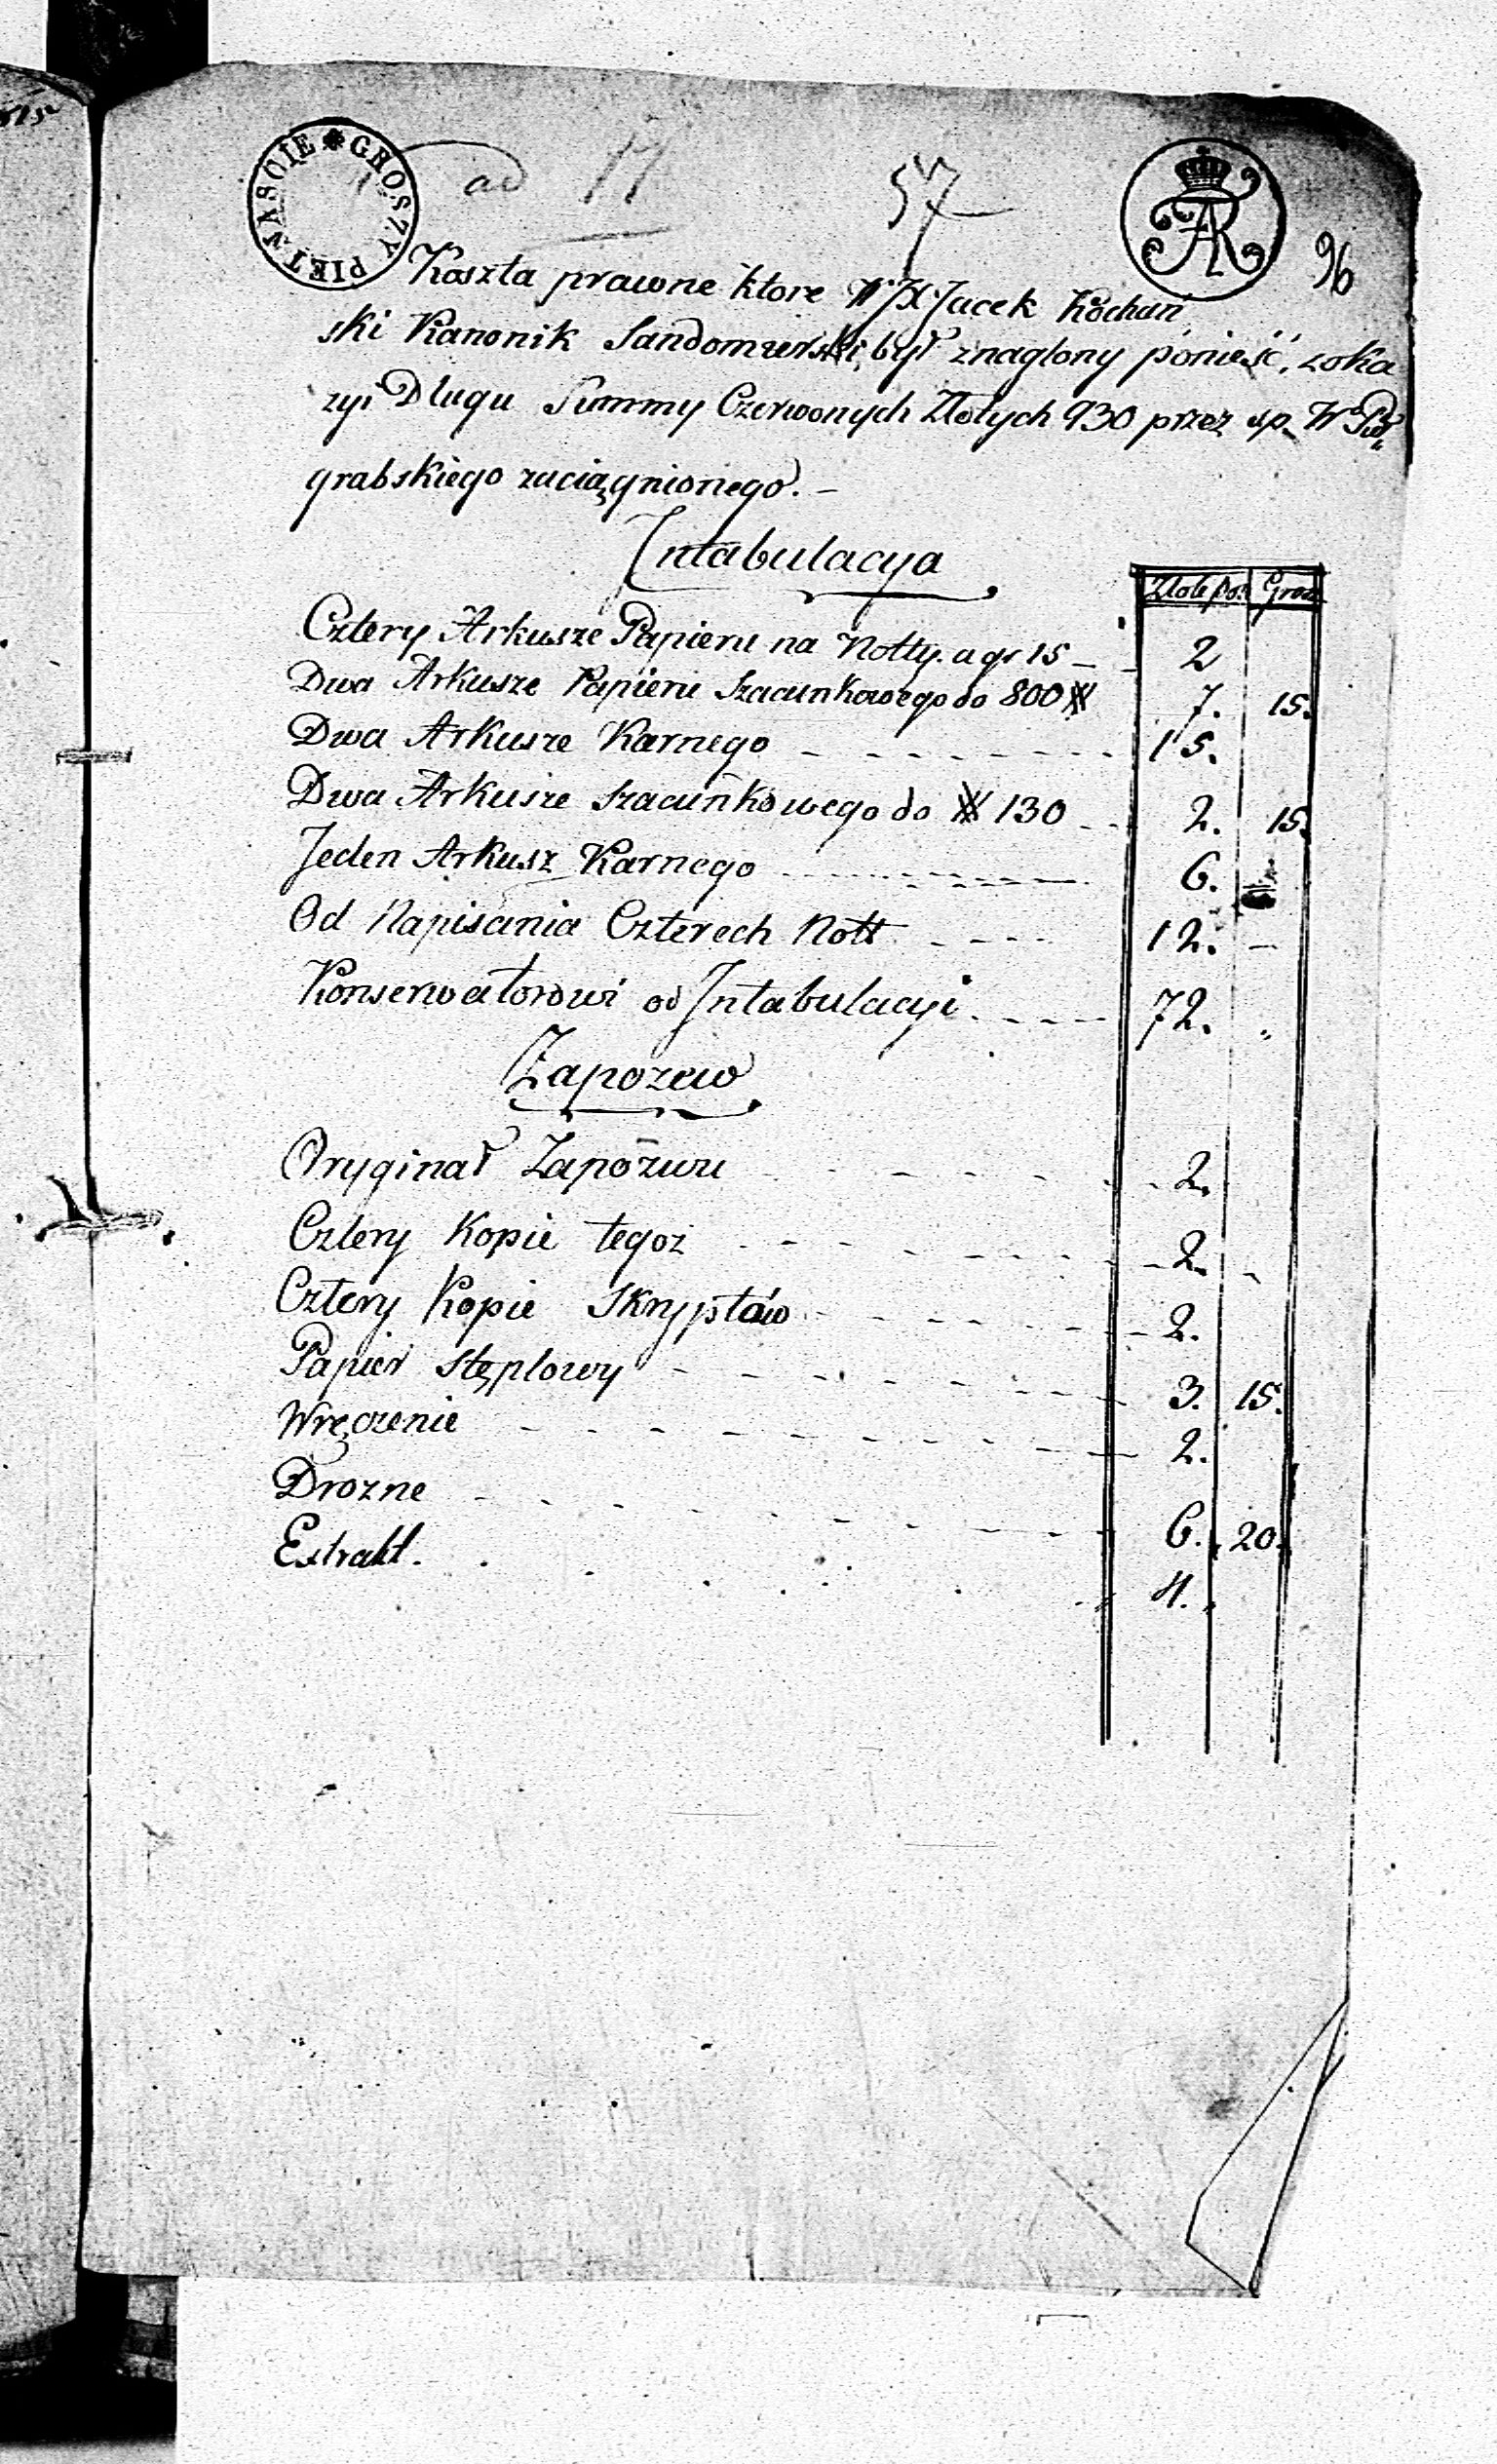 PIETNASCIE * GROSZY
ad 17
57
AR
96
Koszta prawne ktore WJX Jacek Kochań
ski Kanonik Sandomierski, był znaglony ponieść, z oka
zyi Dlugu Summy Czerwonych Złotych 930 przez sp. W Pod
grabskiego zaciągnionego. –
Intabulacya
Złote Pol. Grosz
Cztery Arkusze Papieru na Notty. a gr 15 – – 2
Dwa Arkusze Papieru Szacunkowego do 800 # 7. 15.
Dwa Arkusze Karnego – – – – – – 15.
Dwa Arkusze szacunkowego do # 130 – – 2. 15.
Jeden Arkusz Karnego – – – – – 6.
Od Napisania Czterech Nott – – – – 12. –
Konserwatorowi od Intabulacyi – – – – 72. "
Zapozew
Oryginał Zapozwu – – – – – 2.
Cztery Kopie tegoz – – – – – 2. –
Cztery Kopie Skryptów – – – – – 2.
Papier stęplowy – – – – – 3. 15.
Wręczenie – – – – – 2.
Drozne – – – – – 6. 20.
Extrakt. . . . . . 4. "